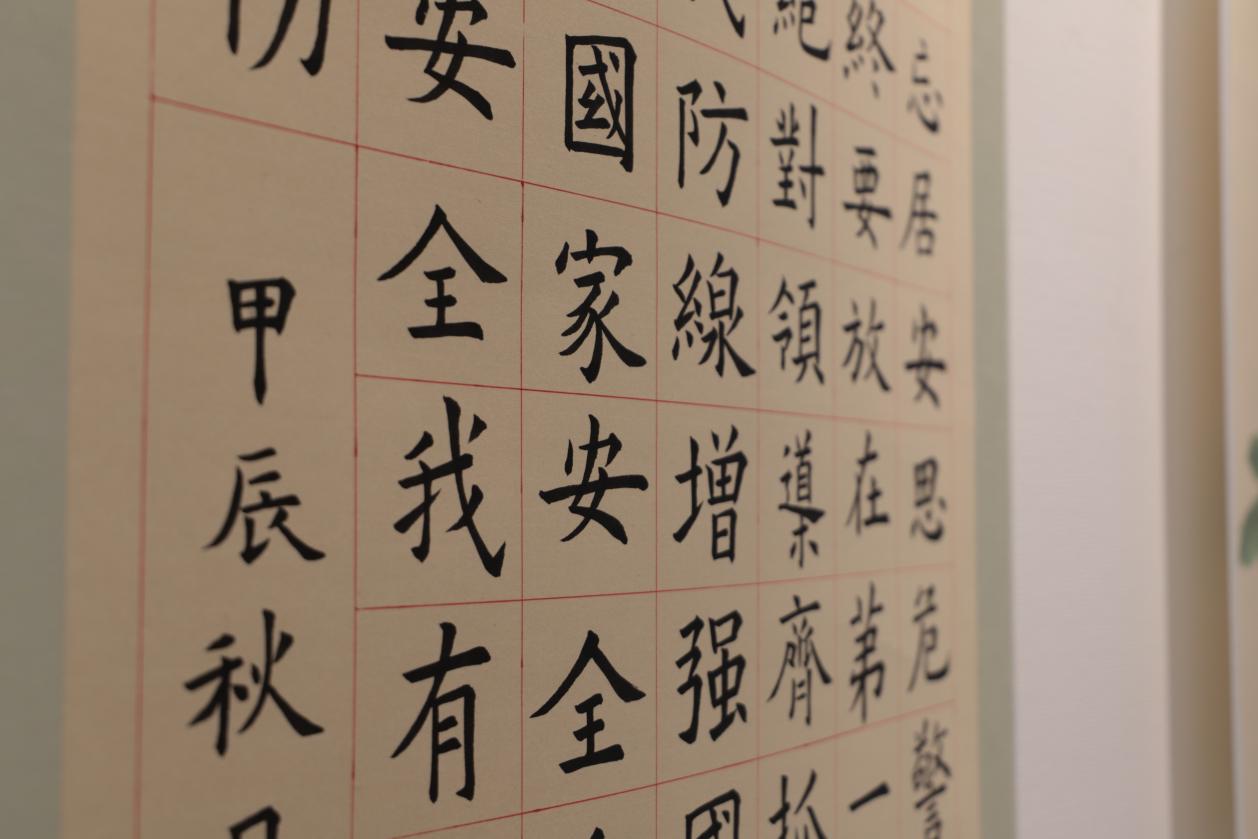 忘居安思危警
終要放在第一
絕對領導齊抓
防線增强國
國家安全
安全我有
甲辰秋月